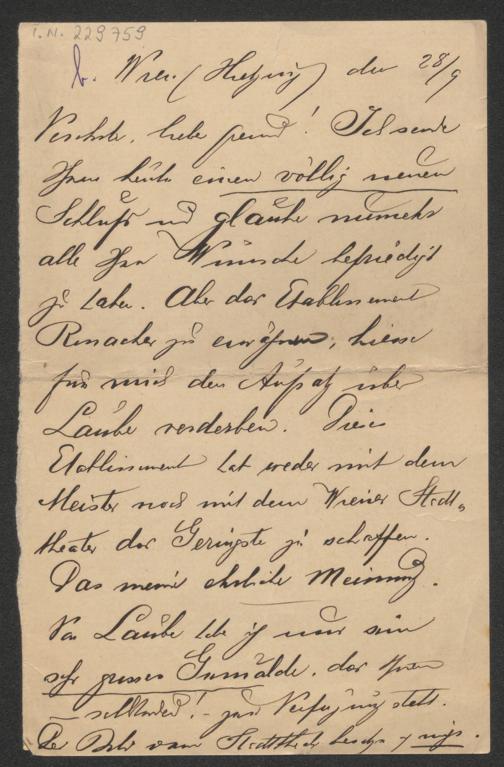 I.N. 229759
b. Wien (Hietzing) den 28/9
Verehrter, lieber Freund! Ich sende
Ihnen heute einen völlig neuen
Schluß und glaube nunmehr
alle Ihre Wünsche befriedigt
zu haben. Aber das Etablissement
Ronacher zu erwähnen, hiesse
für mich den Aufsatz über
Laube verderben. Dieses
Etablissement hat weder mit dem
Meister noch mit dem Wiener Stadt-
theater das Geringste zu schaffen.
Das meine ehrliche Meinung.
Von Laube habe ich nur ein
sehr grosses Gemälde, das Ihnen
– selbstredend! – zur Verfügung steht.
Der vom Stadttheater ich